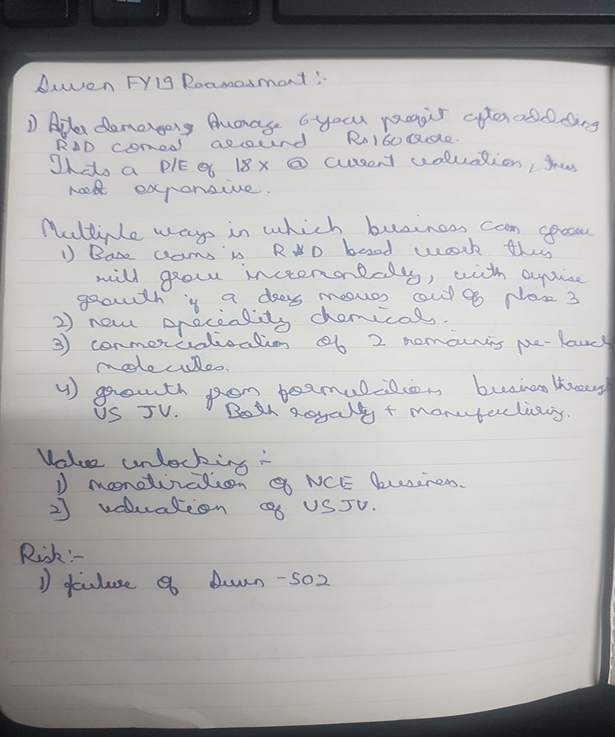 Suven FY19 Reassasment:-
1) After demerger, Average 6-year profit after addding
R&D comes around Rs160 crore.
Thats a P/E of 18x @ current valuation, thus
not expensive.
Multiple ways in which business can grow
1) Base crams is R&D based work thus
will grow incrementaly, with suprise
growth if a drug moves out of phase 3
2) new speciality chemicals.
3) commercialisation of 2 remaining pre-launch
molecules.
4) growth from formulations business through
US JV. Both royalty + manufacturing.
Value unlocking :-
1) monetisation of NCE business.
2) valuation of US JV.
Risk:-
1) failure of Suvn -502